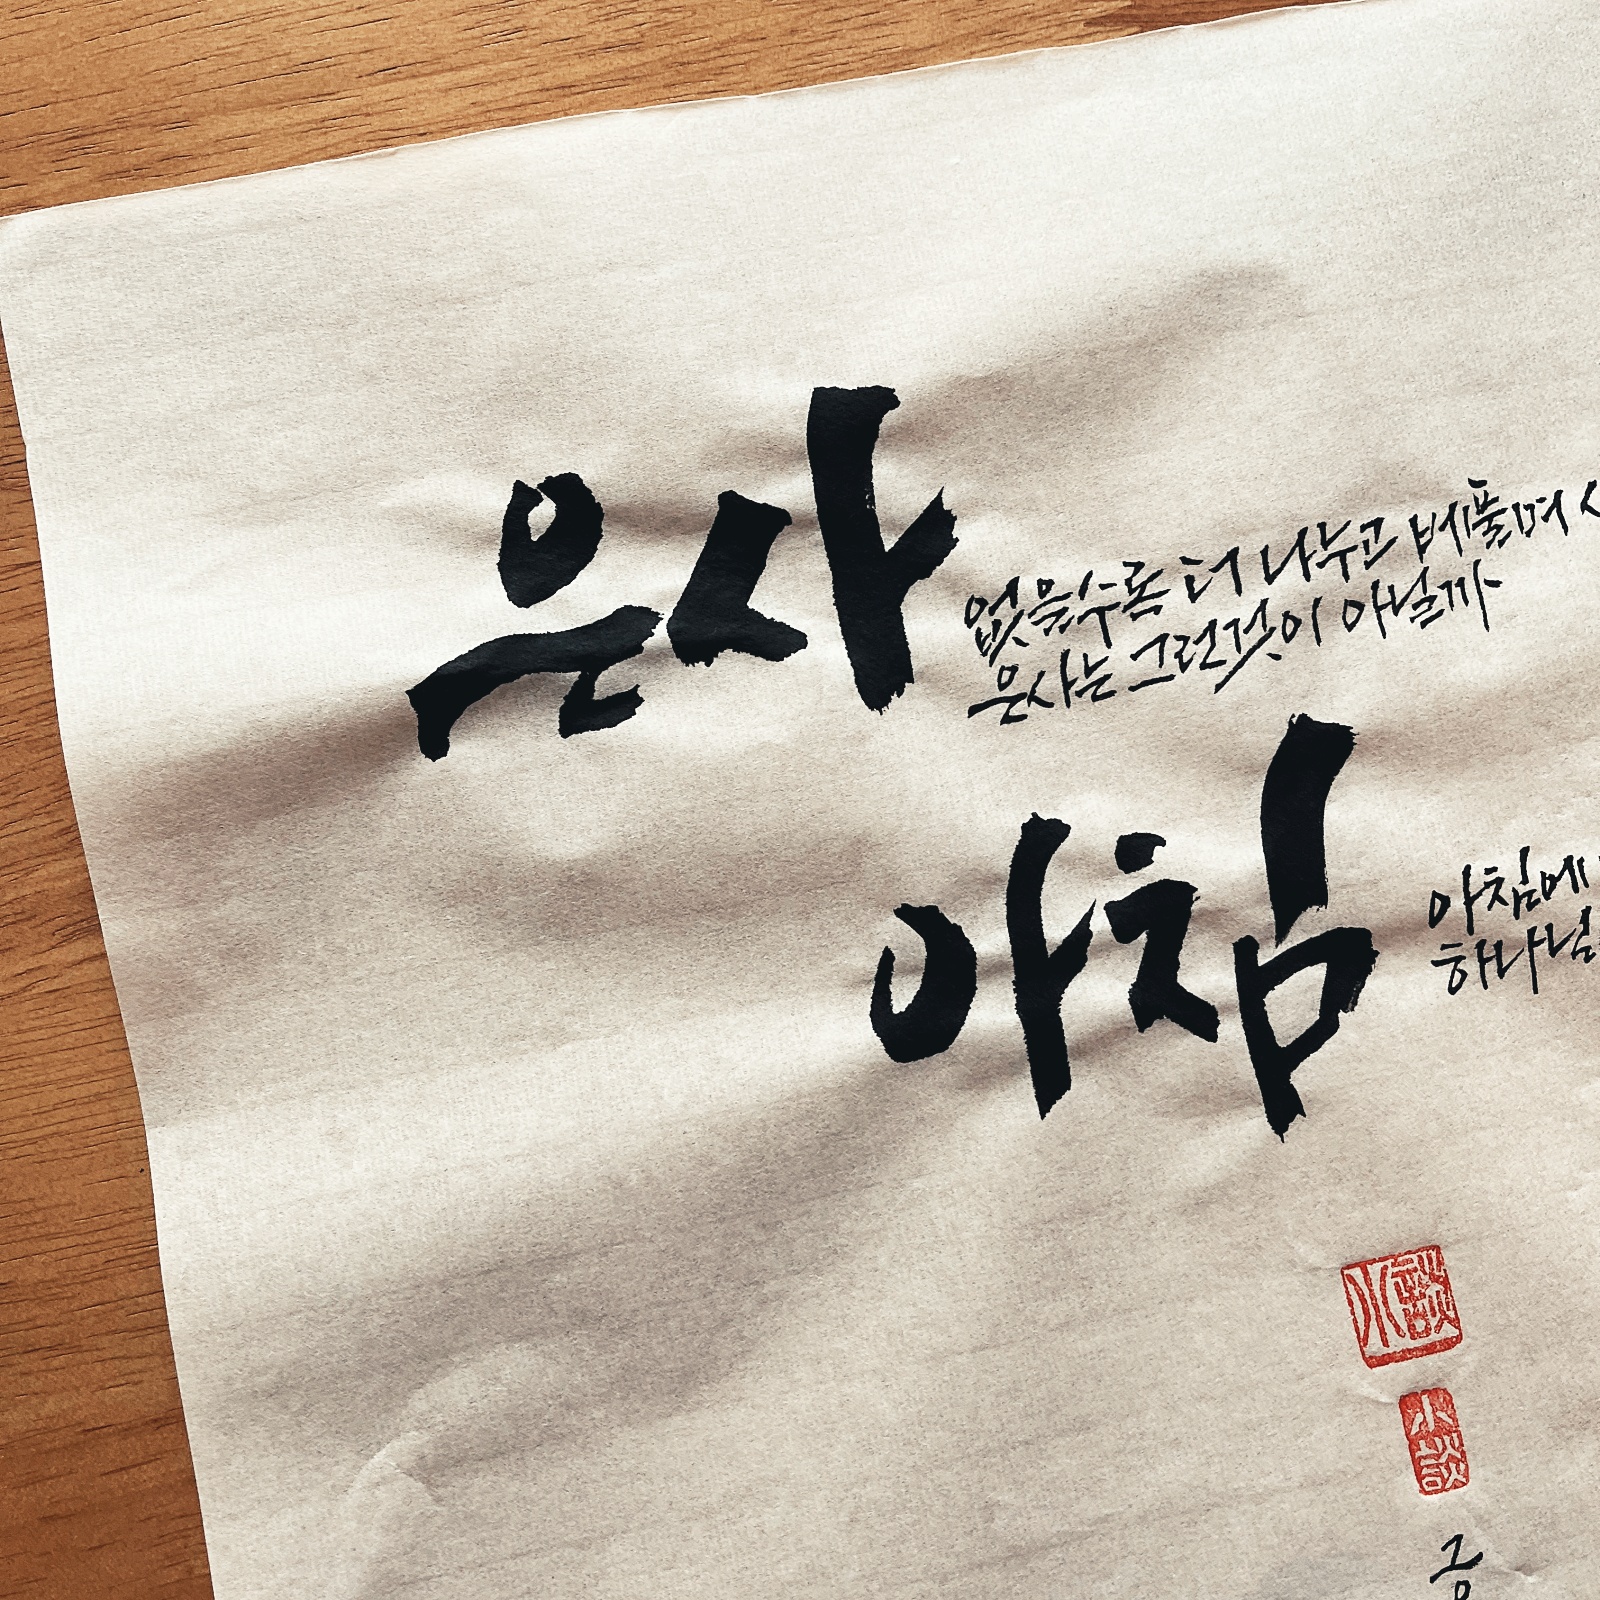 은사
없을수록 더 나누고 베풀며
은사는 그런것이 아닐까
아침
아침에
하나님
小談
小談